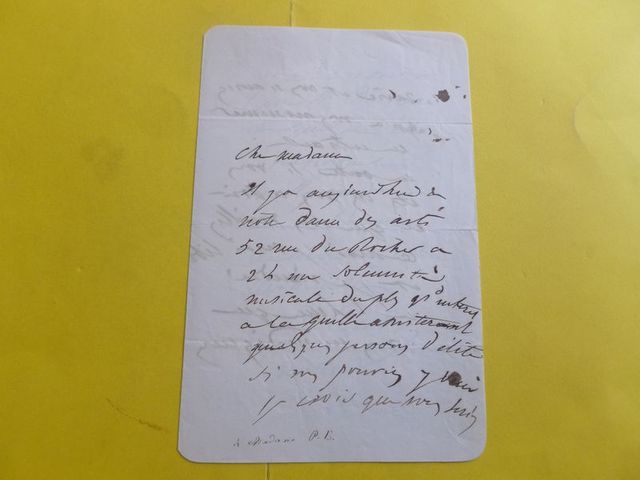 Che madame
Il y a aujourdhui a
notre dame des arts
52 rue du Rocher a
2 h une solennité
musicale du plus gd interet
a laquelle assisteront
quelques personnes d'élite
si vous pouviez y venir
je crois que vous seriez
à Madame P. E.